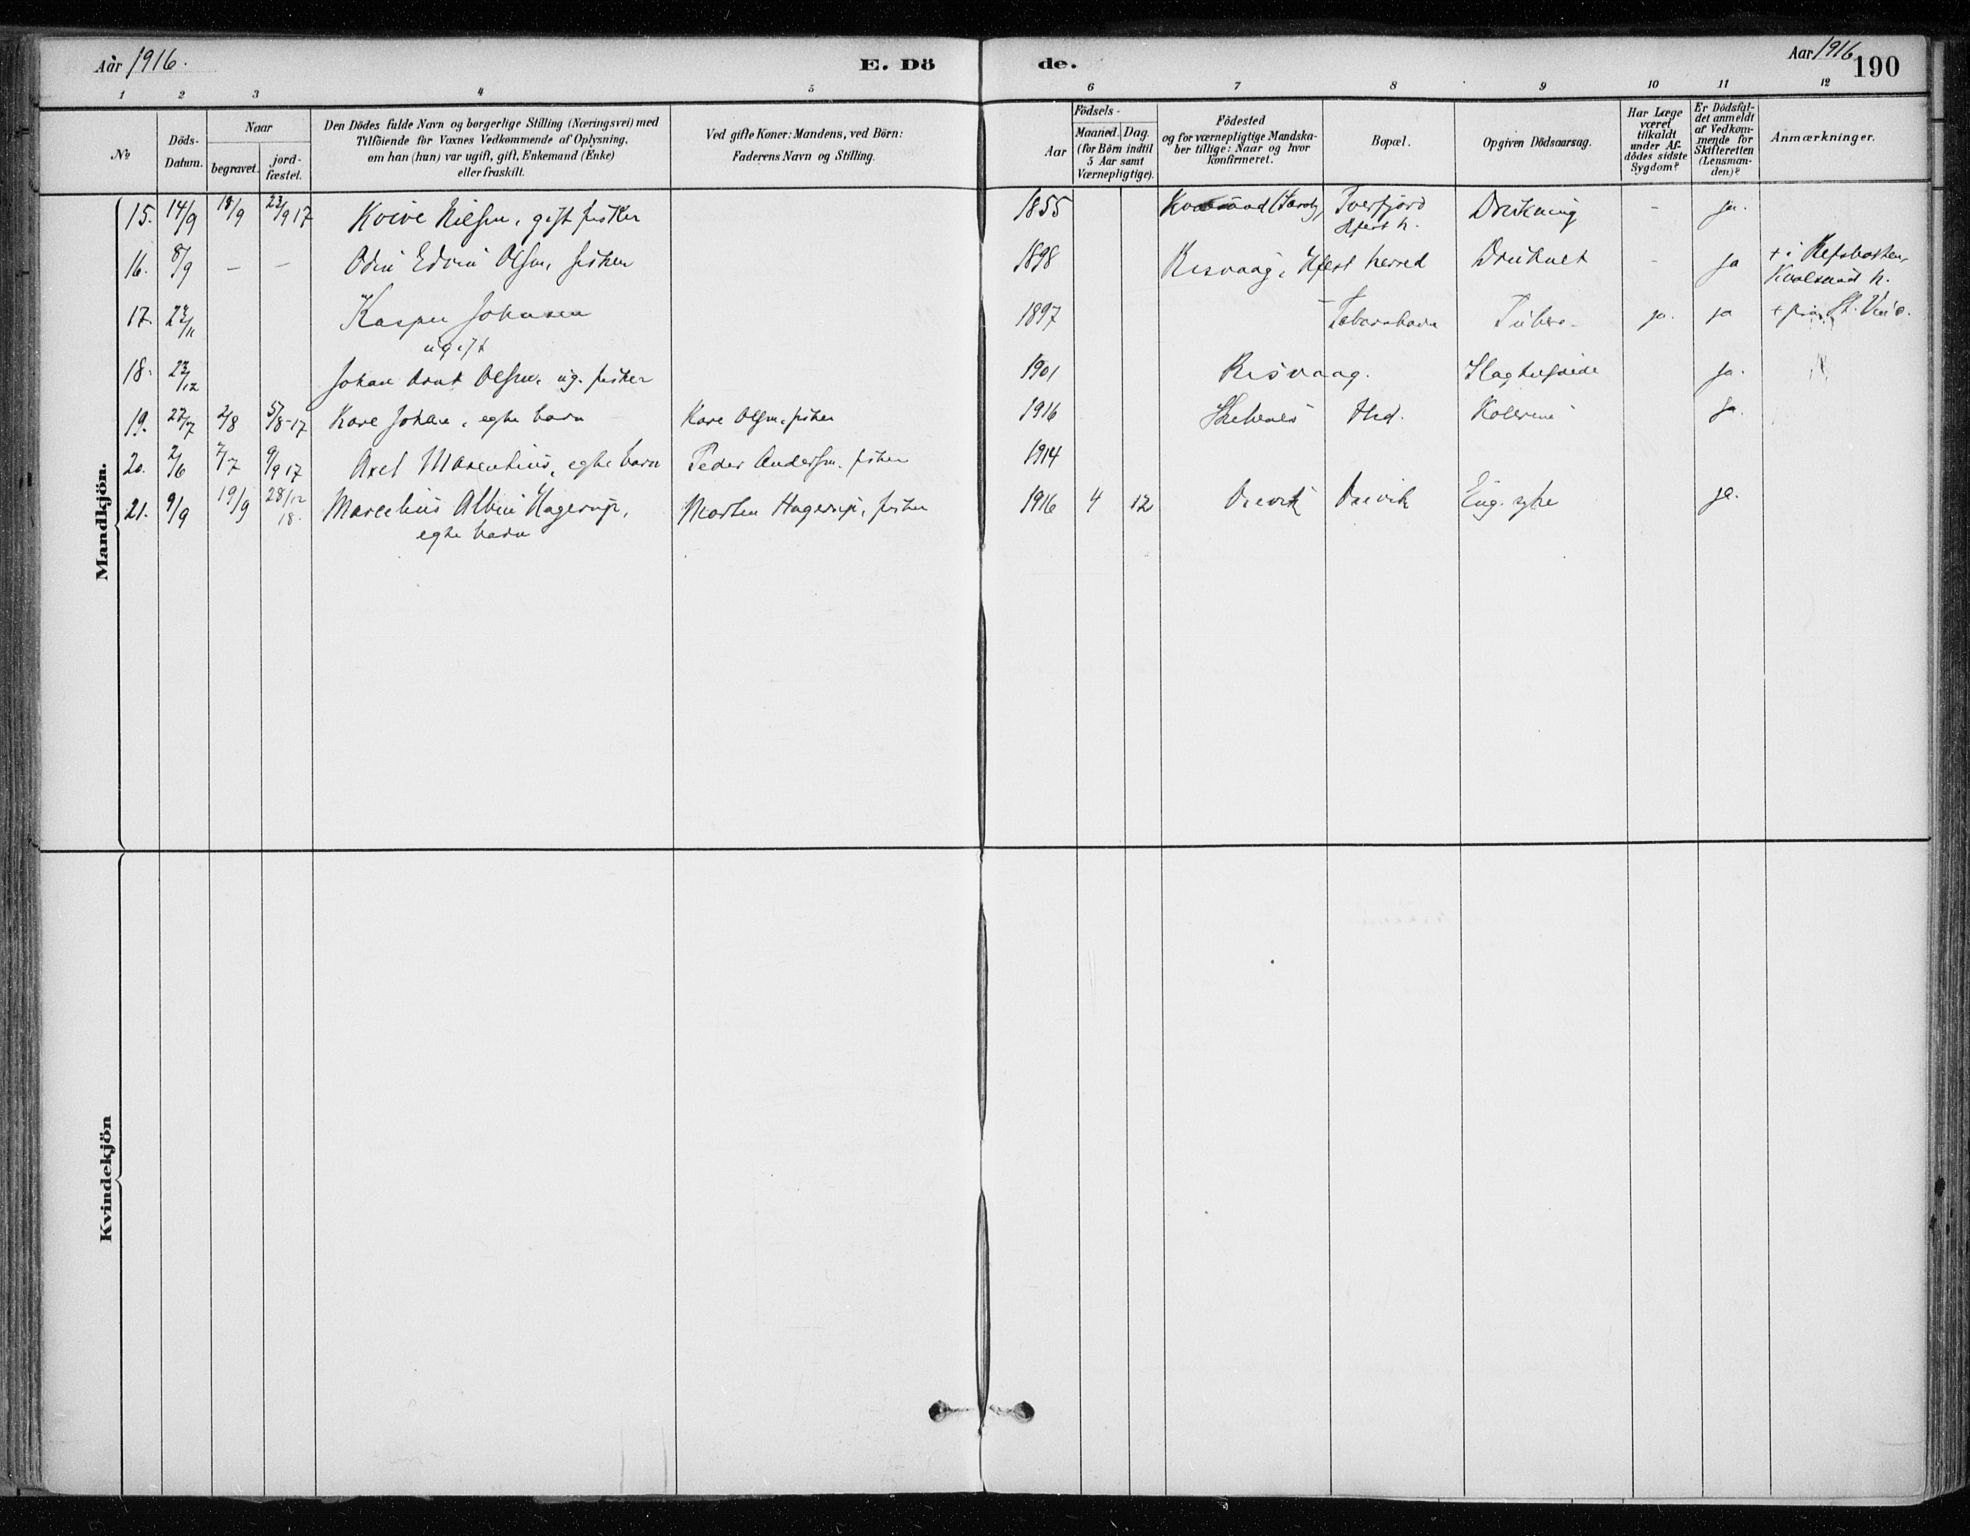 Aar 1916.
E. Dö
de.
Aar 1916
190
1 2 3 4 5 6 7 8 9 10 11 12
No
Döds-
Datum.
Naar
begravet.
jord-
fæstet.
Den Dödes fulde Navn og borgerlige Stilling (Næringsvei) med
Tilföiende for Voxnes Vedkommende af Oplysning,
om han (hun) var ugift, gift, Enkemand (Enke)
eller fraskilt.
Ved gifte Koner: Mandens, ved Börn:
Faderens Navn og Stilling.
Födsels-
Aar
Maaned. Dag.
(for Börn indtil
5 Aar samt
Værnepligtige).
Födested
og for værnepligtige Mandska-
ber tillige: Naar og hvor
konfirmeret.
Bopæl.
Opgiven Dödsaarsag.
Har Læge
været
tilkaldt
under Af-
dödes sidste
Sygdom?
Er Dödsfal-
det anmeldt
af Vedkom-
mende for
Skifteretten
(Lensman-
den)?
Anmærkninger.
Mandkjön.
15. 14/9 18/9 23/9 17 Koive Nilsen, gift fisker 1855 Tverfjord Drukning - ja.
Hfest h.
16. 8/9 - - Odin Edvin Olsen, fisker 1898 Risvaag, Hfest herred Druknet - ja + i Refsbotten,
Kvalsund h.
17. 22/11 Kasper Johnsen 1897 Tuberc. ja. ja + paa St. Vin.
ugift
18. 23/12 Johan Arnt Olsen, ug. fisker 1901 Risvaag. ja.
19. 27/7 2/8 5/8-17 Kare Johan, egte barn Kare Olsen, fisker 1916 Kolerine ja.
20. 2/6 7/7 9/9 17 Axel Maxentius, egte barn Peder Andersen, fisker 1914
21. 9/9 19/9 28/12 18. Marcelius Albin Hagerup, Morten Hagerup, fisker 1916 4 12 Eng. syke ja.
egte barn
Kvindekjön